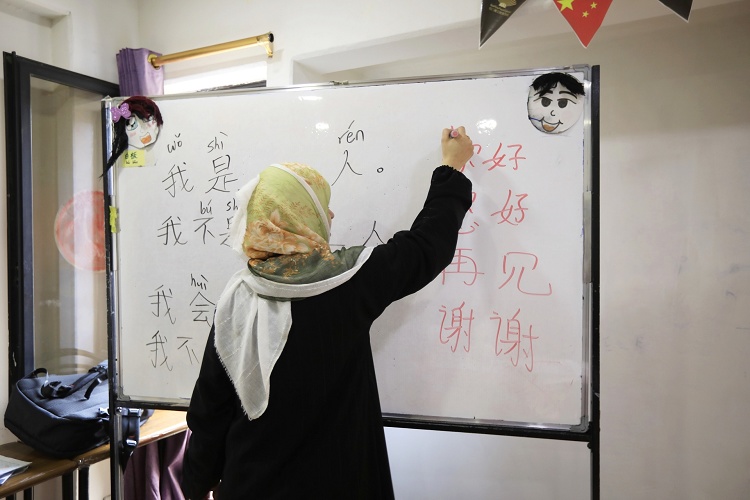 wǒ shì rén
我是 人。
bú sh
我不是 人
huì
我会
我不
你好
您好
再见
谢谢